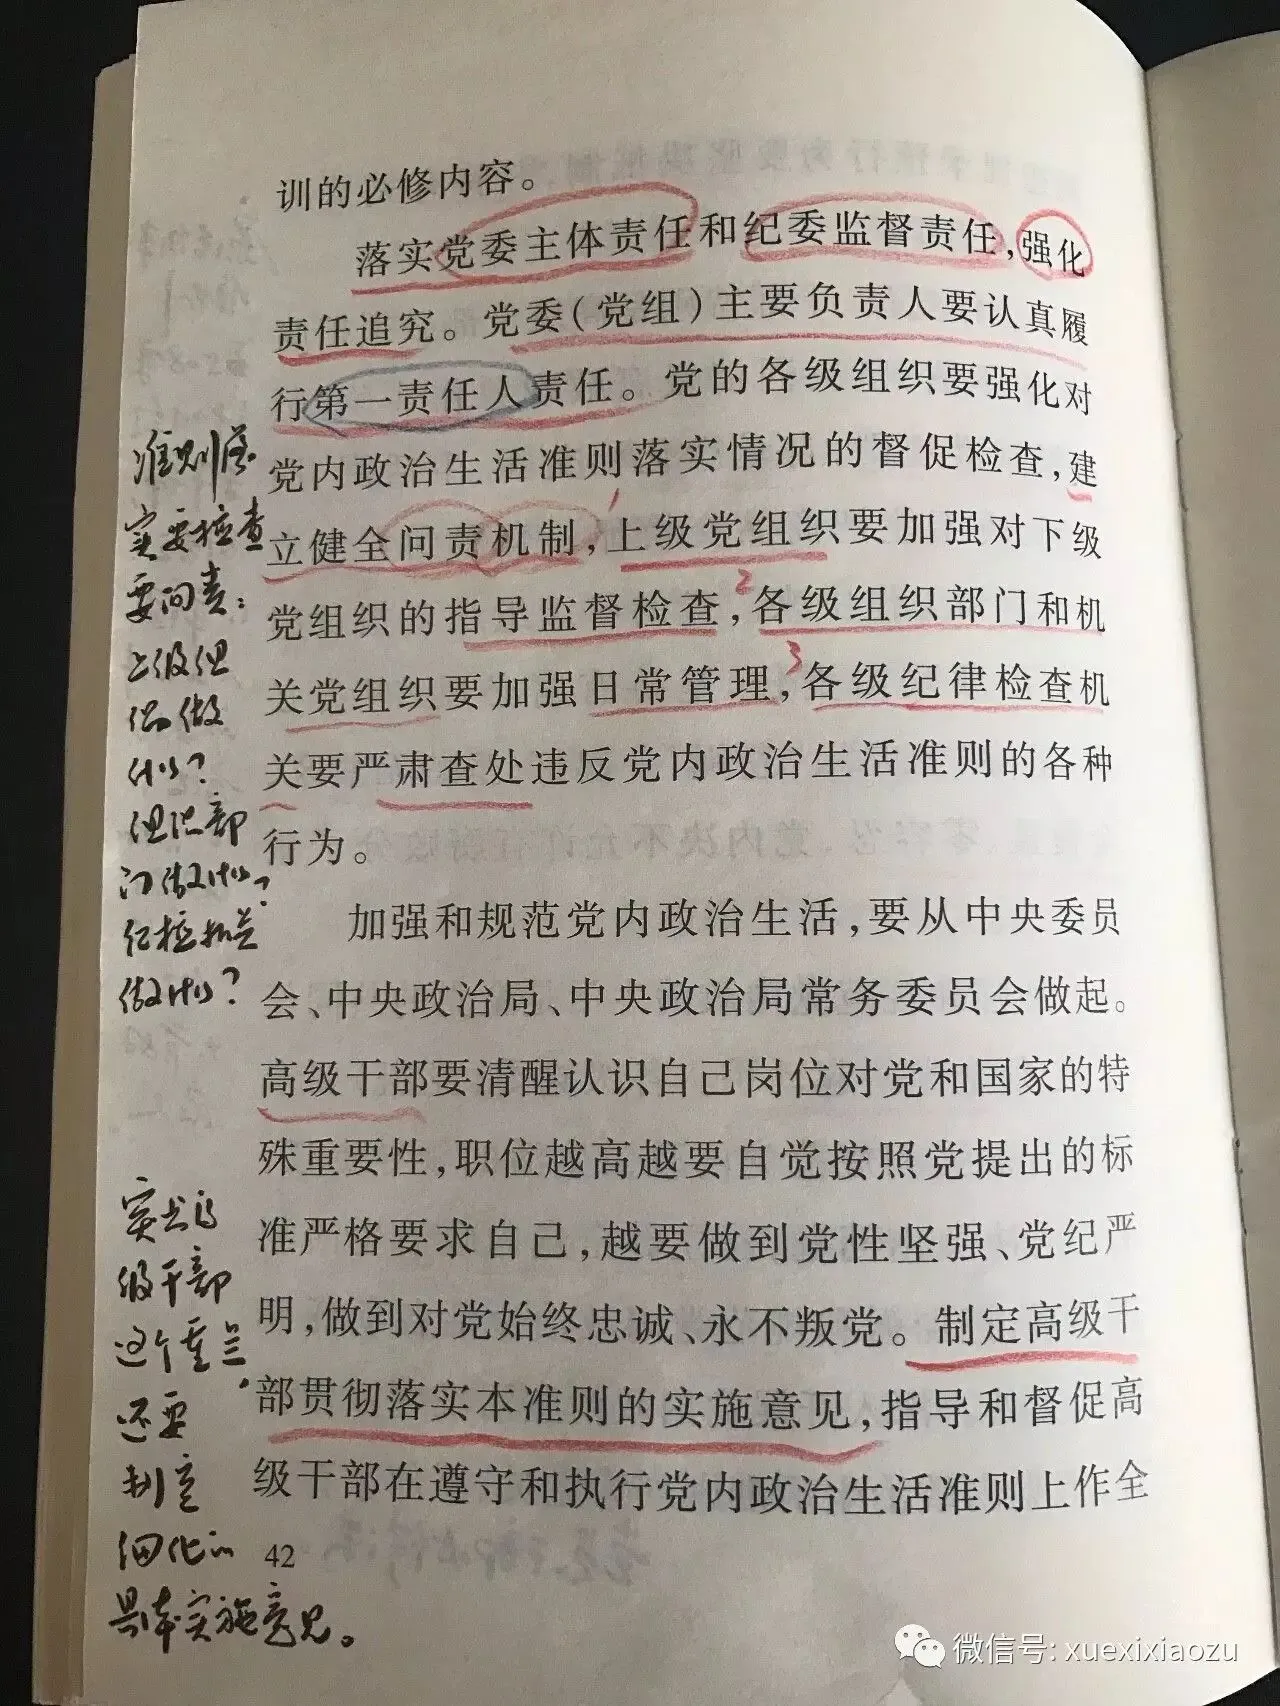 训的必修内容。
落实党委主体责任和纪委监督责任,强化
责任追究。党委(党组)主要负责人要认真履
行第一责任人责任。党的各级组织要强化对
党内政治生活准则落实情况的督促检查,建
立健全问责机制,上级党组织要加强对下级
党组织的指导监督检查,各级组织部门和机
关党组织要加强日常管理,各级纪律检查机
关要严肃查处违反党内政治生活准则的各种
行为。
加强和规范党内政治生活,要从中央委员
会、中央政治局、中央政治局常务委员会做起。
高级干部要清醒认识自己岗位对党和国家的特
殊重要性,职位越高越要自觉按照党提出的标
准严格要求自己,越要做到党性坚强、党纪严
明,做到对党始终忠诚、永不叛党。制定高级干
部贯彻落实本准则的实施意见,指导和督促高
级干部在遵守和执行党内政治生活准则上作全
42
准则落
实要检查
要问责:
上级组
织做
什么?
组织部
门做什么?
纪检机关
做什么?
突出高
级干部
这个重点,
还要
制定
细化的
具体实施意见。
1
2
3
微信号: xuexixiaozu